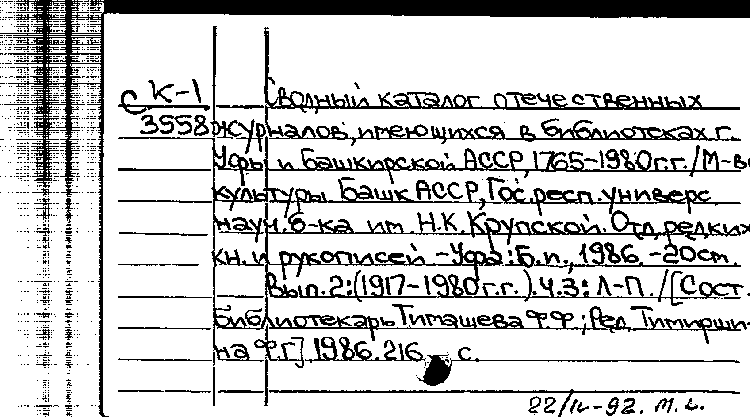 С К-1
3558
Сводный каталог отечественных
журналов, имеющихся в библиотеках г.
Уфы и Башкирской АССР, 1765-1980г.г./М-во
культуры Башк АССР, Гос. респ. универс.
науч. б-ка им. Н.К. Крупской. Отд. редких
кн. и рукописей -Уфа: Б.и., 1986.-20см.
Вып. 2:(1917-1980г.г.).Ч.3: Л-П./[Сост.
библиотекарь Тимашева Ф.Ф.; Ред. Тимирши-
на Ф.Г.] 1986. 216 с.
22/IV-92. М.С.